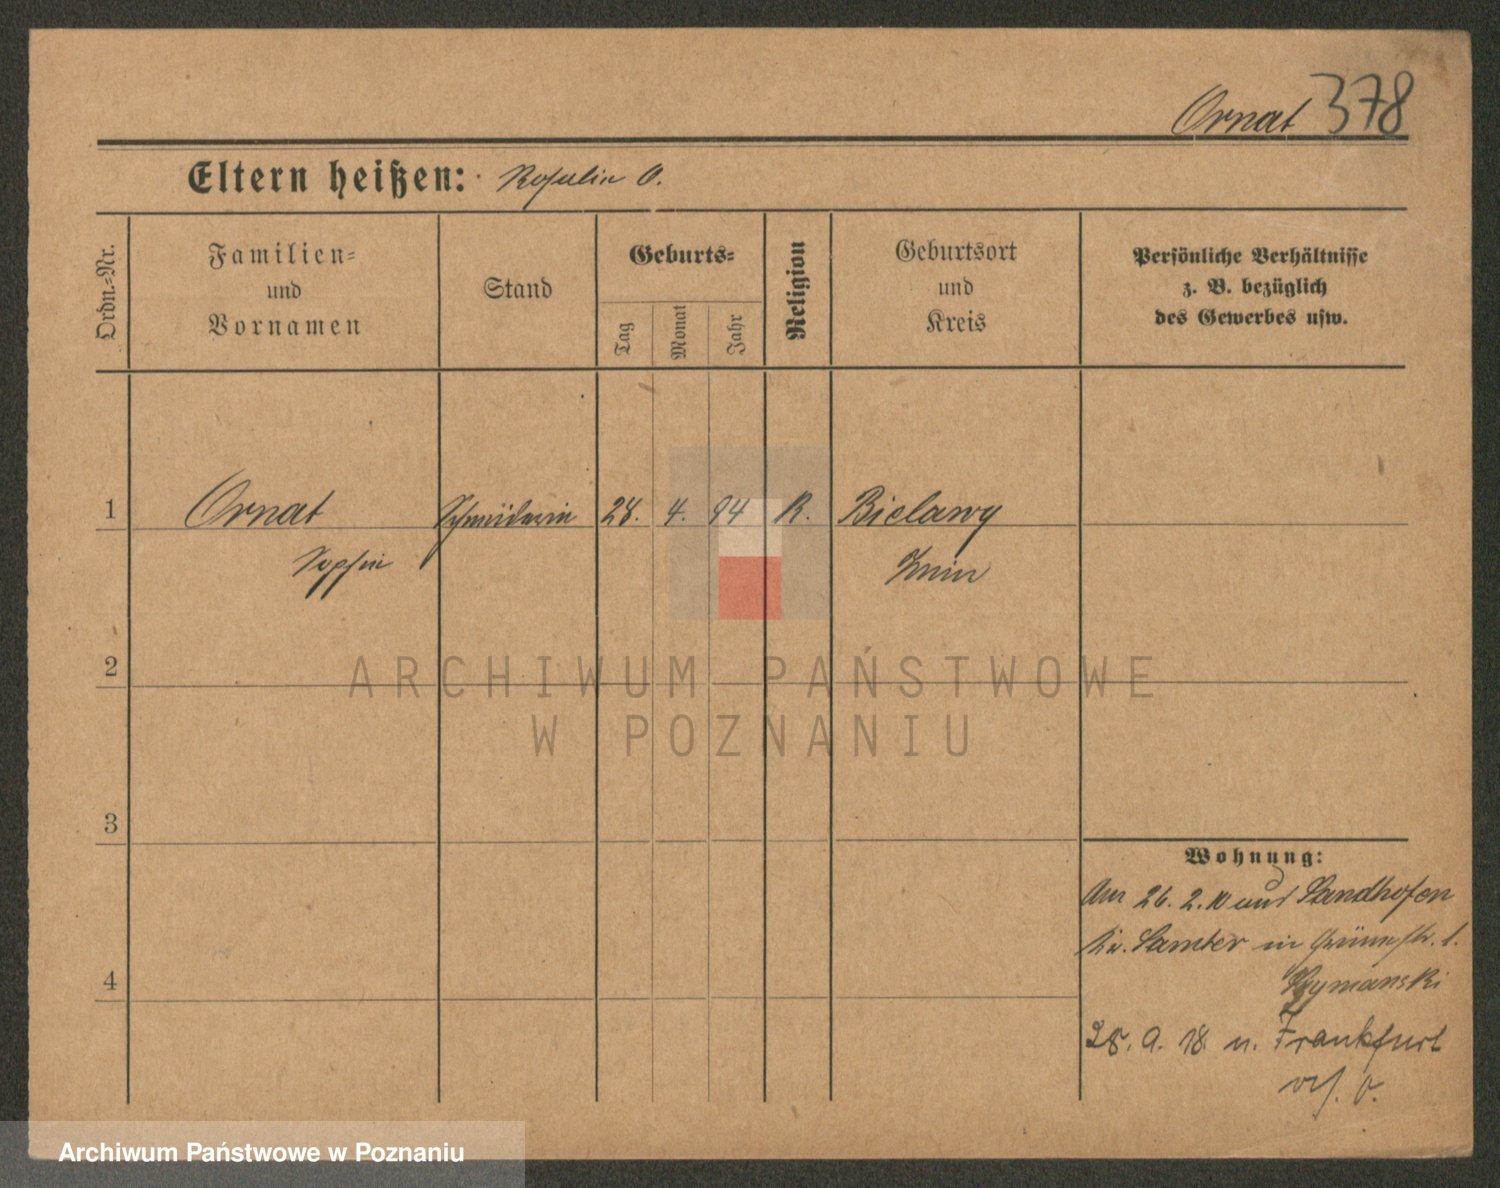 Ornat 378
Eltern heißen: Rosalie O.
Ordn.=Nr.
Familien=
und
Vornamen
Stand
Geburts=
Tag
Monat
Jahr
Religion
Geburtsort
und
Kreis
Persönliche Verhältnisse
z. B. bezüglich
des Gewerbes usw.
1 Ornat Schneiderin 28. 4. 94 R. Bielawy
Sophie Znin
2
3
4
Wohnung:
Am 26. 2. Sandhofen
Kr. Samter in Grünestr. 1.
Szymanski
28. 9. 18. n. Frankfurt
a. O.
ARCHIWUM PAŃSTWOWE
W POZNANIU
Archiwum Państwowe w Poznaniu